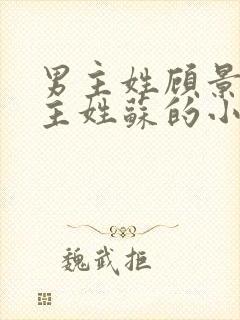 男主姓顾景
主姓蘇的小
魏武拒